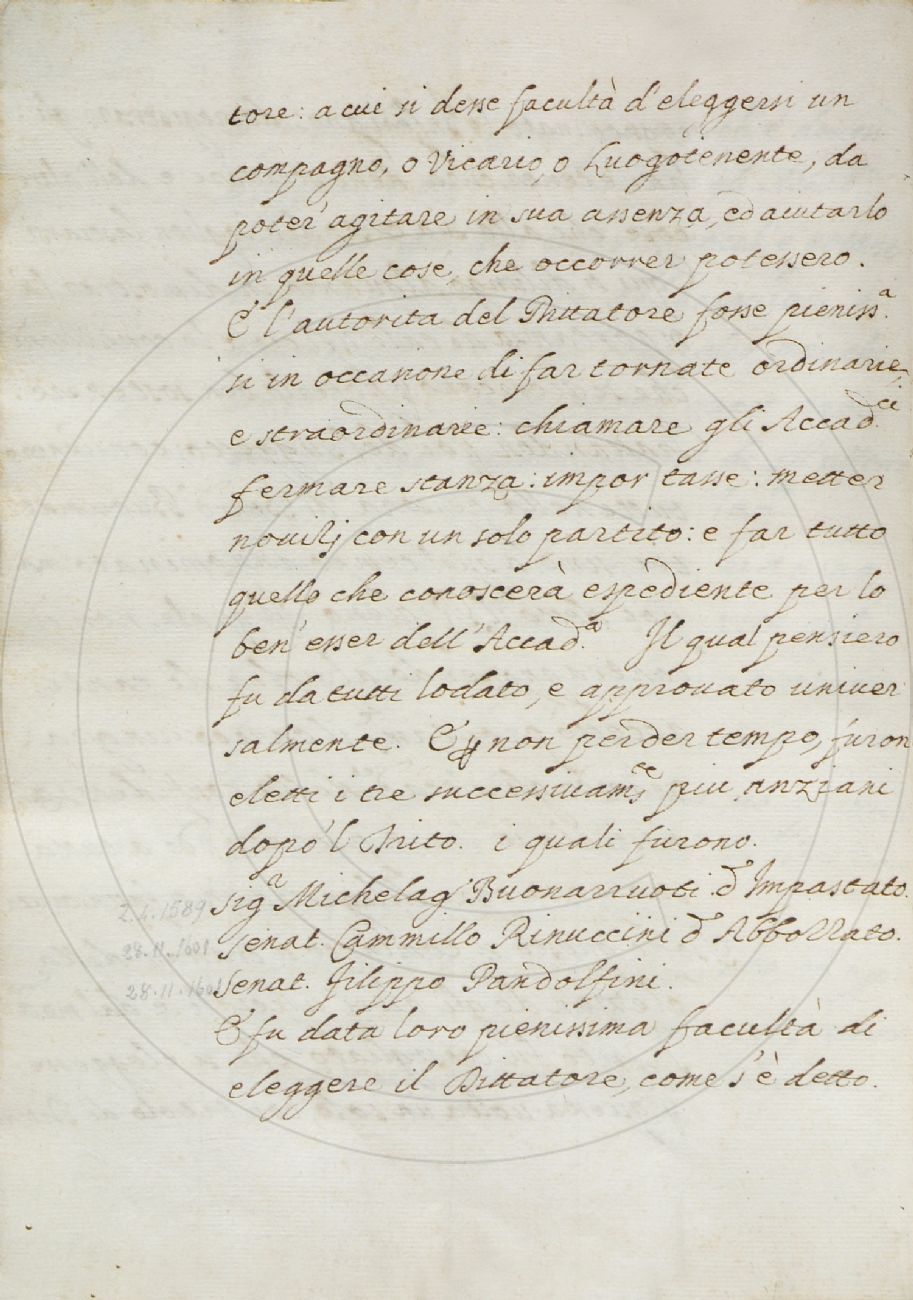 tore: a cui si desse facultà d'eleggersi un
compagno, o Vicario, o Luogotenente, da
poter' agitare in sua assenza, ed aiutarlo
in quelle cose, che occorrer potessero.
E l'autorita del Dittatore fosse pieniss.ª
si in occasione di far tornate ordinarie,
e straordinarie: chiamare gli Accad.ci
fermare stanza: impor tasse: metter
novilj con un solo partito: e far tutto
quello che conoscerà espediente per lo
ben' esser dell' Accad.ª Il qual pensiero
fu da tutti lodato, e approuato uniuer
salmente. E ꝑ non perder tempo, furon
eletti i tre successiuam.te piu anziani
dopo 'l Trito. i quali furono.
2.4.1589 Sig.r Michelag.º Buonarruoti dº Impastato.
28.11.1601 Senat. Cammillo Rinuccini dº Abbozzato.
28.11.1601 Senat. Filippo Pandolfini.
E fu data loro pienissima facultà di
eleggere il Dittatore, come s'è detto.